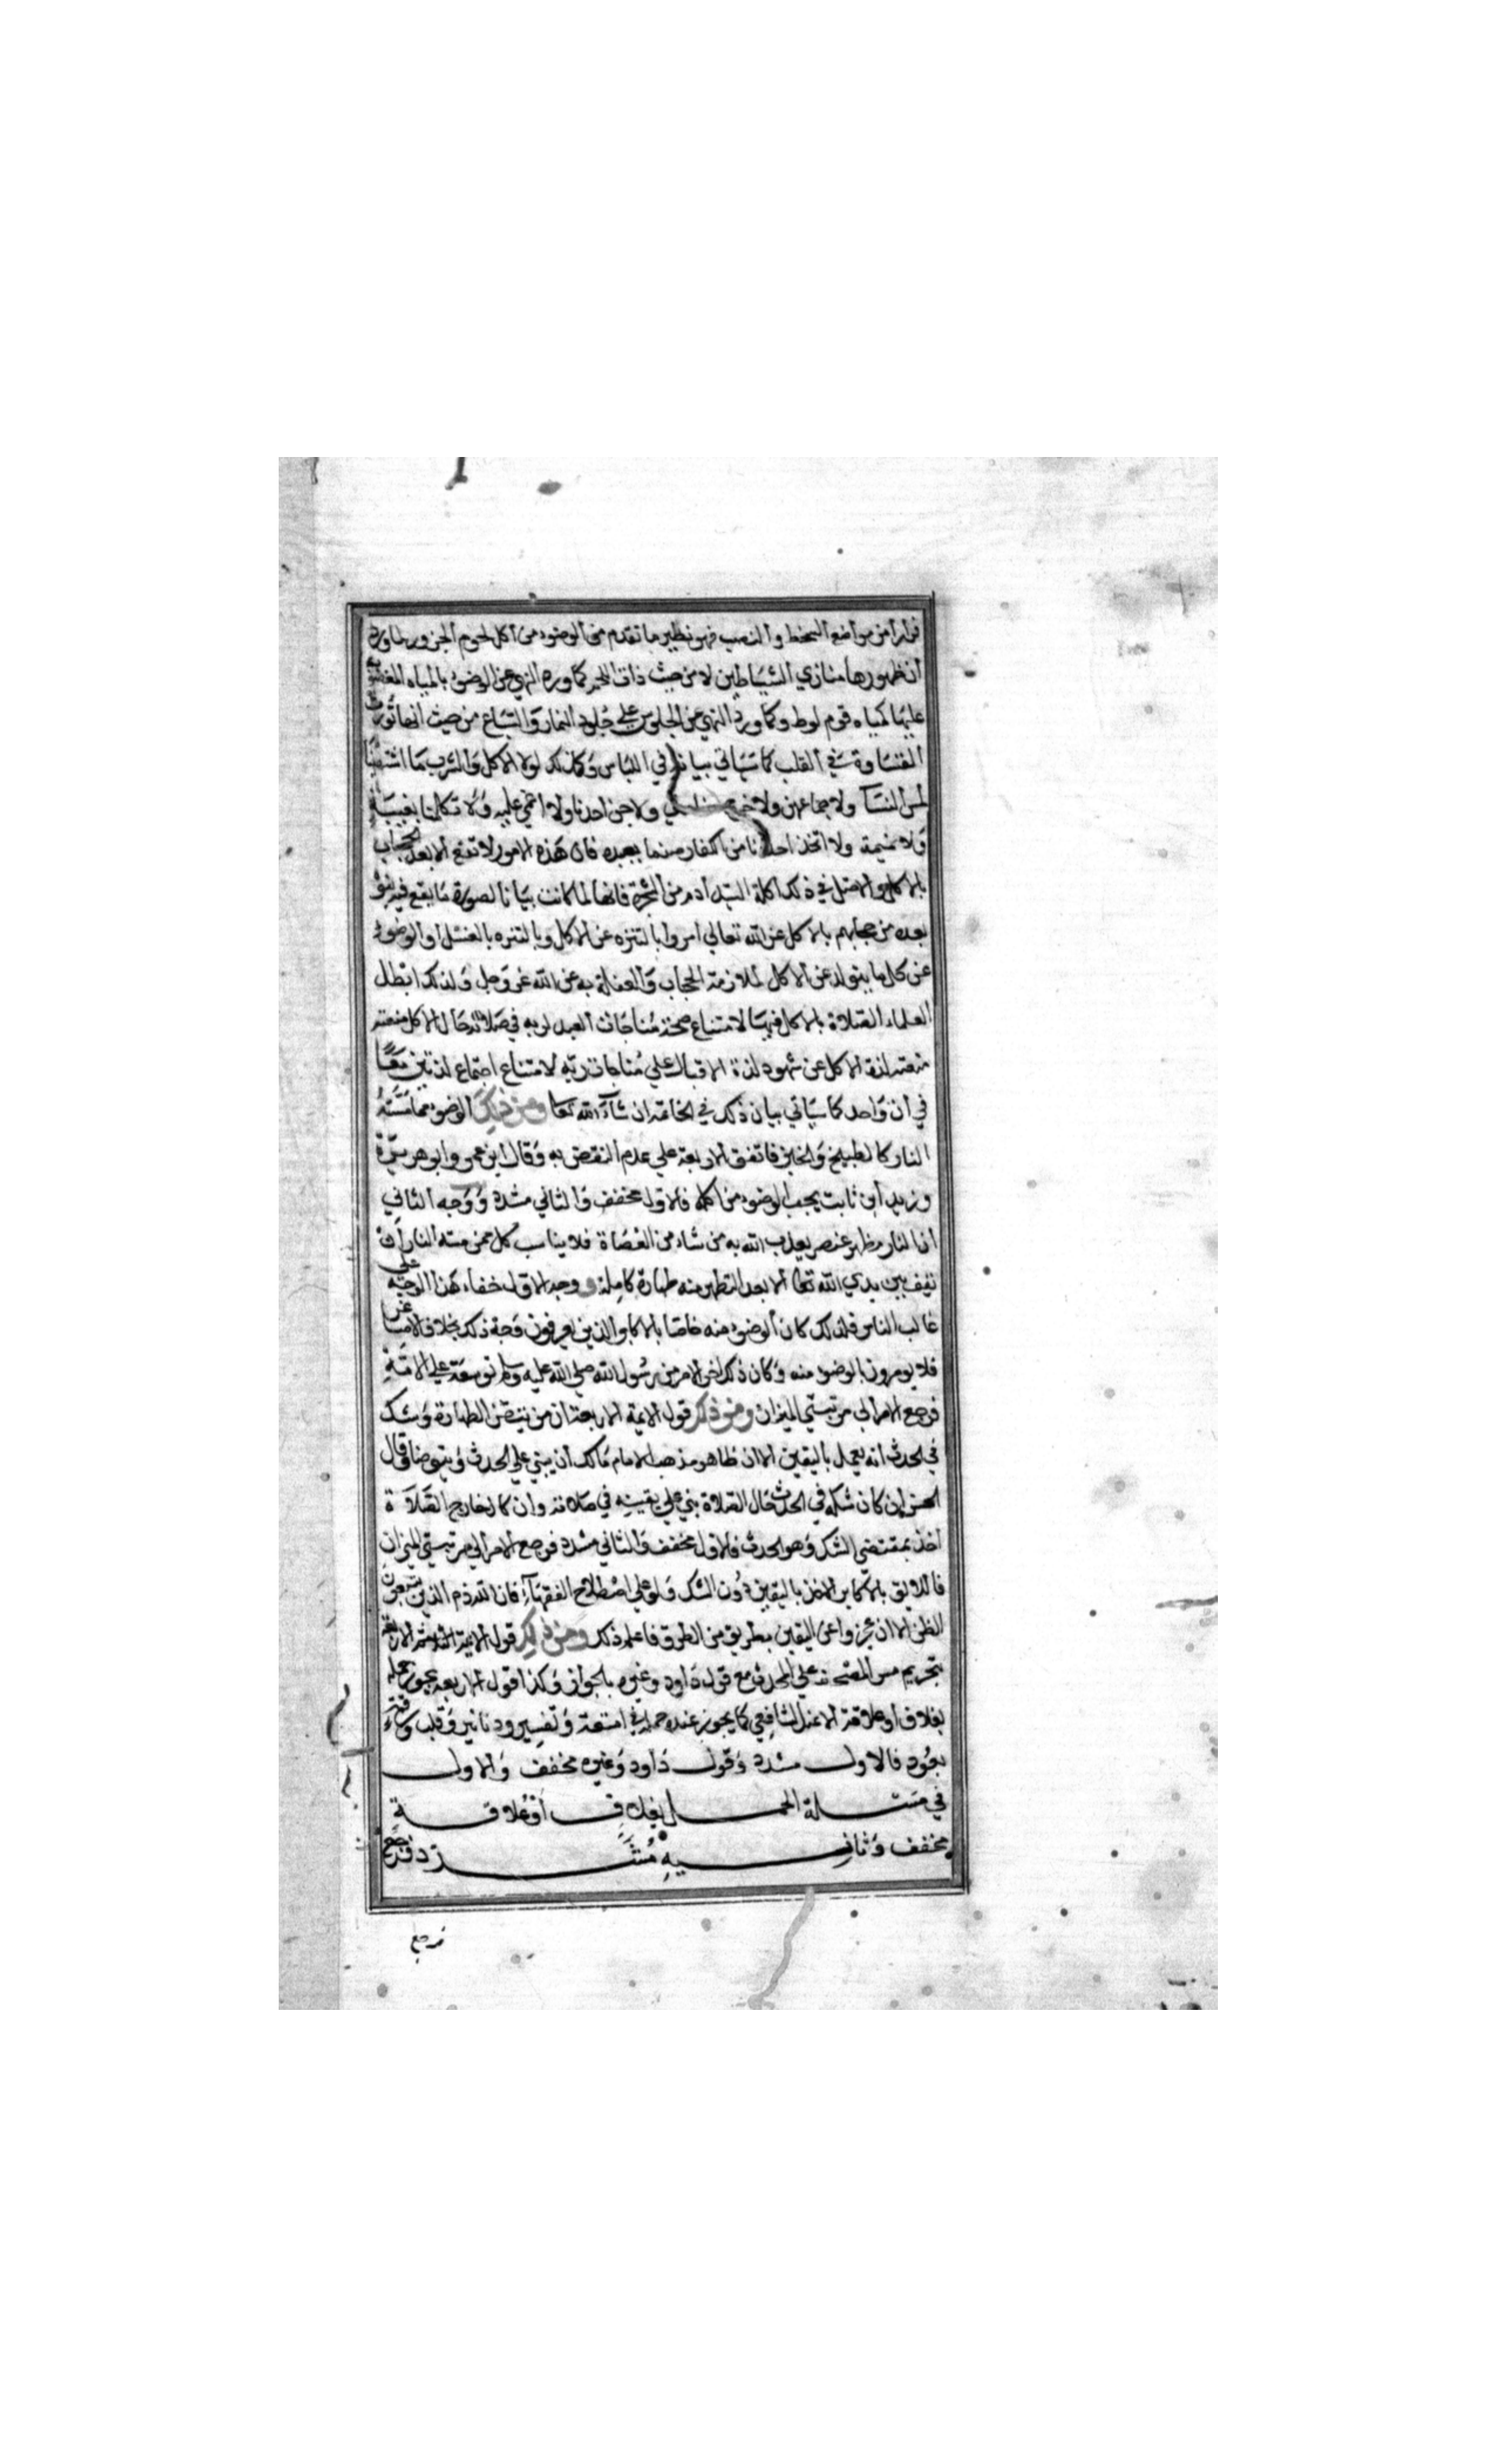 فرارا من مواضع السخط والغضب فهو نظير ما تقدم من الوضوء من أكل لحوم الجزور لما ورد
أن ظهورها منازي الشياطين لا من حيث ذات الجير كما ورد النهي عن الوضوء بالمياه المغضوب
عليها كمياه قوم لوط وكما ورد النهي عن الجلوس على جلود النمار والسباع من حيث انها تورث
القساوة في القلب كما سياتي بيانه في اللباس وكذلك لولا الاكل والشرب ما اشتهينا
لمس النسآ ولا جماعهن ولا ولا جن احدنا ولا اغمي عليه ولا تكلمنا بغيبة
ولا نميمة ولا اتخذ احدنا من الكفار صنما يعبده فان هذه الامور لا تقع الا بعد الحجاب
بالاكل والاصل في ذلك اكلة السيد أدم من الشجرة فانها لما كانت بيانا لصورة ما يقع فيه بنوه
بعده من حجابهم بالاكل عن الله تعالي أمروا بالتنزه عن الاكل وبالتنزه بالغسل أو الوضوء
عن كل ما يتولد عن الاكل لملازمة الحجاب والغفلة به عن الله عز وجل ولذلك ابطل
العلماء الصلاة بالاكل فيها لامتناع صحة مناجات العبد لربه في صلاته حال الاكل منعته
منعته لذة الاكل عن شهود لذة الاقبال علي مناجات ربه لامتناع اجتماع لذتين معا
في أن واحد كما سياتي بيان ذلك في الخاتمة ان شآء الله تعا ومن ذلك الوضوء مما مسته
النار كالطبيخ والخبز فاتفق الاربعة علي عدم النقض به وقال ابن عمر وابو هريرة
وزيد أبن ثابت يجب الوضوء من اكله فالاول مخفف والثاني مشدد ووجه الثاني
أن النار مظهر عنصر يعذب الله به من شاء من العصاة فلا يناسب كل من مسته النار أن
نقف بين يدي الله تعا الا بعد التطهر منه طهارة كاملة ووجه الاول خفاء هذا الوجه علي
غالب الناس فلذلك كان الوضوء منه خاصا بالاكابر الذين يعرفون وجه ذلك بخلاف الاصاغر
فلا يومرون بالوضوء منه وكان ذلك اخر الامر من رسول الله صلي الله عليه وسلم توسعة علي الامة
فرجع الامر الي مرتبتي الميزان ومن ذلك قول الايمة الاربعة ان من تيقن الطهارة وشك
في الحدث أنه يعمل باليقين الا ان ظاهر مذهب الامام مالك أن يبني علي الحدث ويتوضا وقال
الحسن إن كان شكه في الحدث حال الصلاة بني علي يقينه في صلاته وان كان خارج الصلاة
أخذ بمقتضي الشك وهو الحدث فالاول مخفف والثاني مشدد فرجع الامر الي مرتبتي الميزان
فاللايق بالاكابر الاخذ باليقين دون الشك ولو علي اصطلاح الفقهآء فان الله ذم الذين يتبعون
الظن الا ان عجزوا عن اليقين بطريق من الطرق فاعلم ذلك ومن ذلك قول الايمة الاربعة
بتحريم مس المصحف علي المحدث مع قول داود وغيره بالجواز وكذا قول الاربعة يجوز حمله
بغلاف أو علاقة الا عند الشافعي كما يجوز عنده حمله في امتعة وتفسير ودنانير وقلب ورقته
بعود فالاول مشدد وقول داود وغيره مخفف والاول
في مسئلة الحمل بغلاف أو علاقة
مخفف وثانيه مشدد فرجع
فرجع